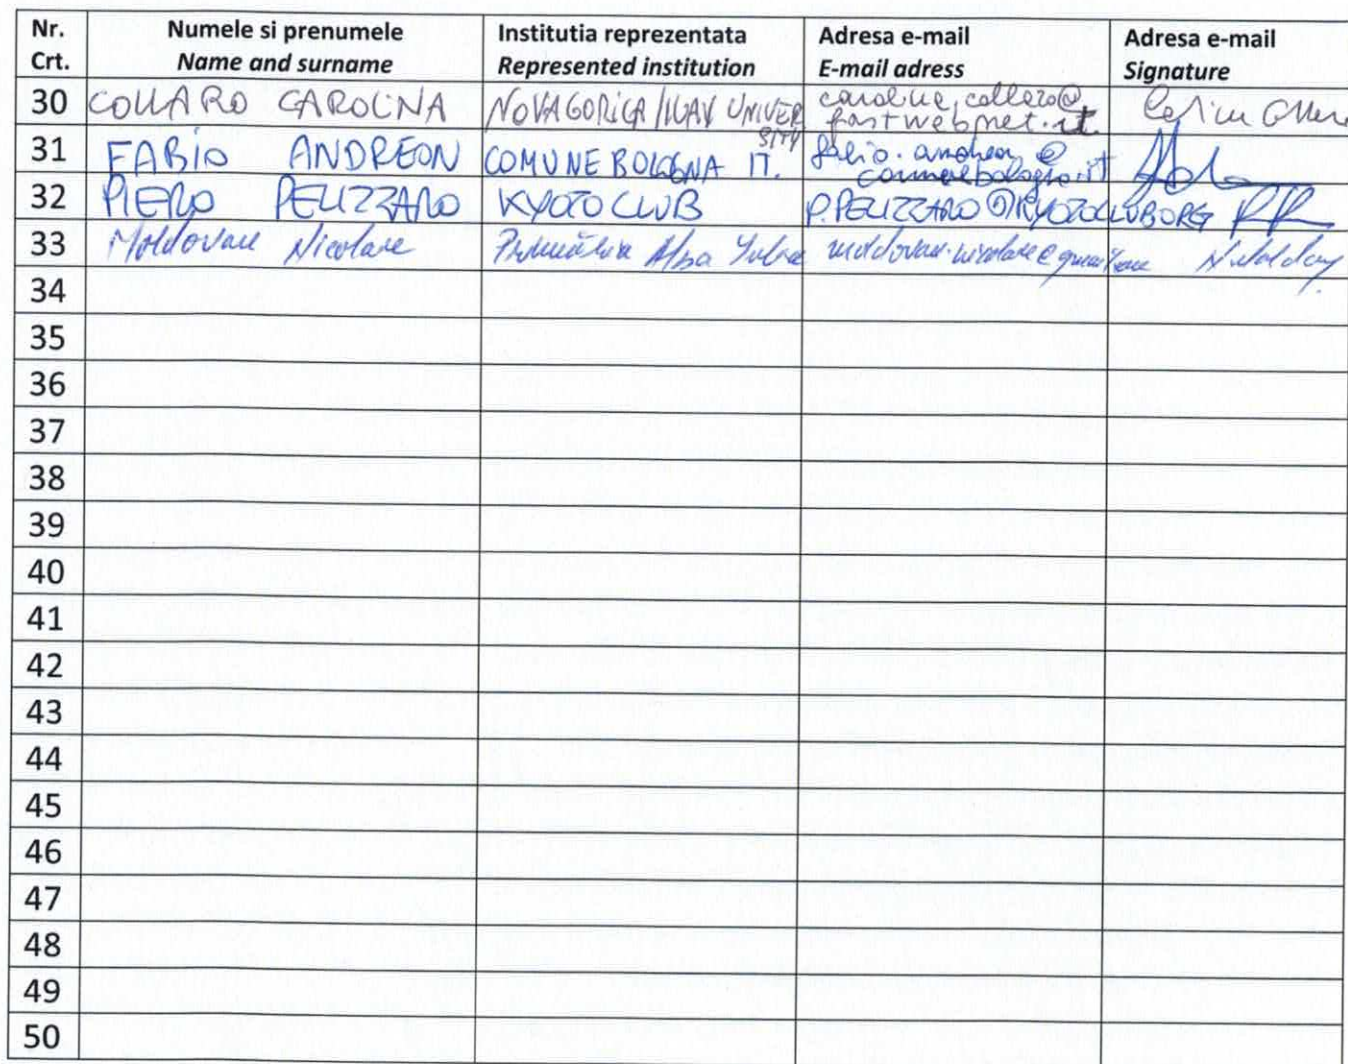 Nr. Crt. Numele si prenumele Name and surname Institutia reprezentata Represented institution Adresa e-mail E-mail adress Adresa e-mail Signature
30 COLLARO CAROLINA NOVAGORICA/IUAV UNIVERSITY @fastwebnet.it
31 FABIO ANDREON COMUNE BOLOGNA IT.
32 PIERO PELIZZARO KYOTO CLUB P.PELIZZARO@KYOTOCLUB.ORG
33 Moldovan Nicolae Primăria Alba Iulia
34
35
36
37
38
39
40
41
42
43
44
45
46
47
48
49
50